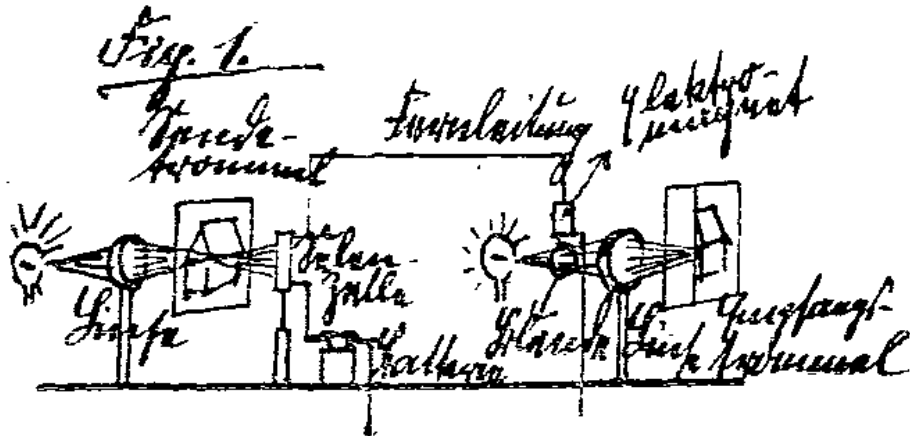 Fig. 1.
Sende-
trommel
Fernleitung
Elektro-
magnet
Linse
Selen-
Zelle
Batterie
Blende
Linse
Empfangs-
trommel